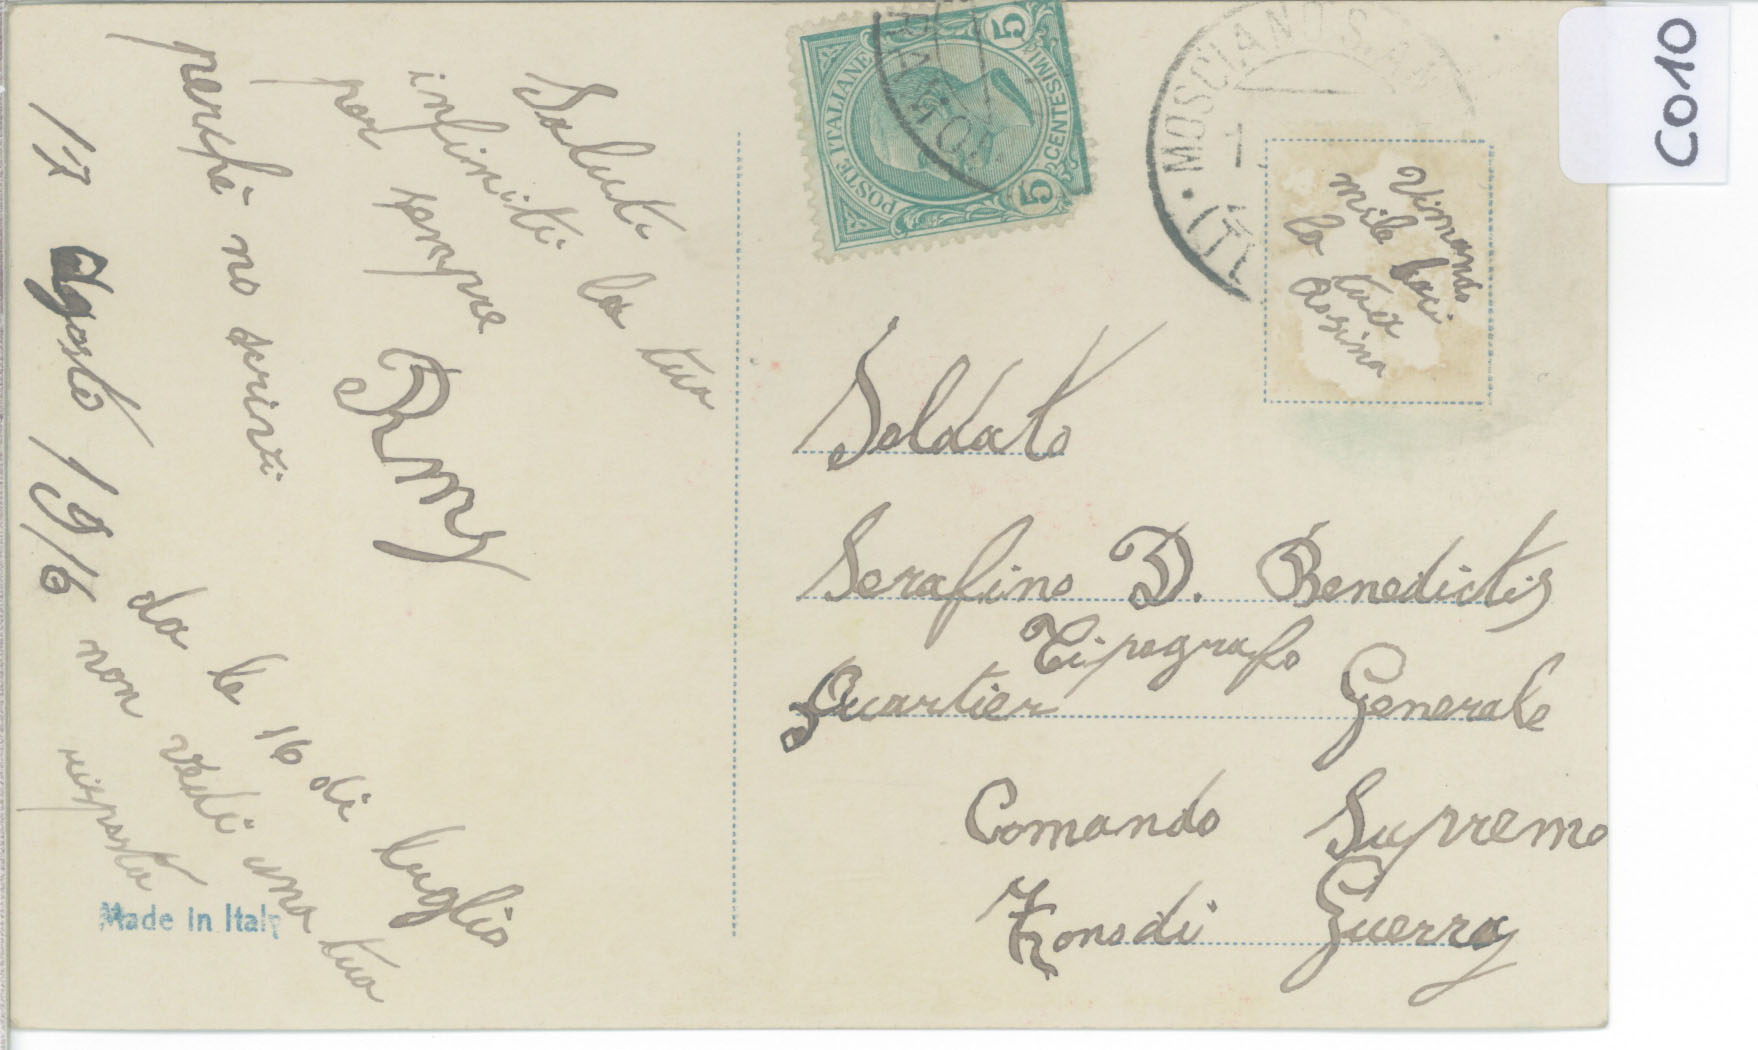 17 Agosto 1916
perchè no scristi
da le 16 di luglio
non vedi una tua
risposta
Saluti
infiniti la tua
per sempre
Made in Italy
POSTE ITALIANE
CENTESIMI
5
5
MOSCIANO S. AN
(T
Vimando
mile baci
la tua
C010
Soldato
Serafino D. Benedictis
Tipografo
Quartier Generale
Comando Supremo
Zona di Guerra